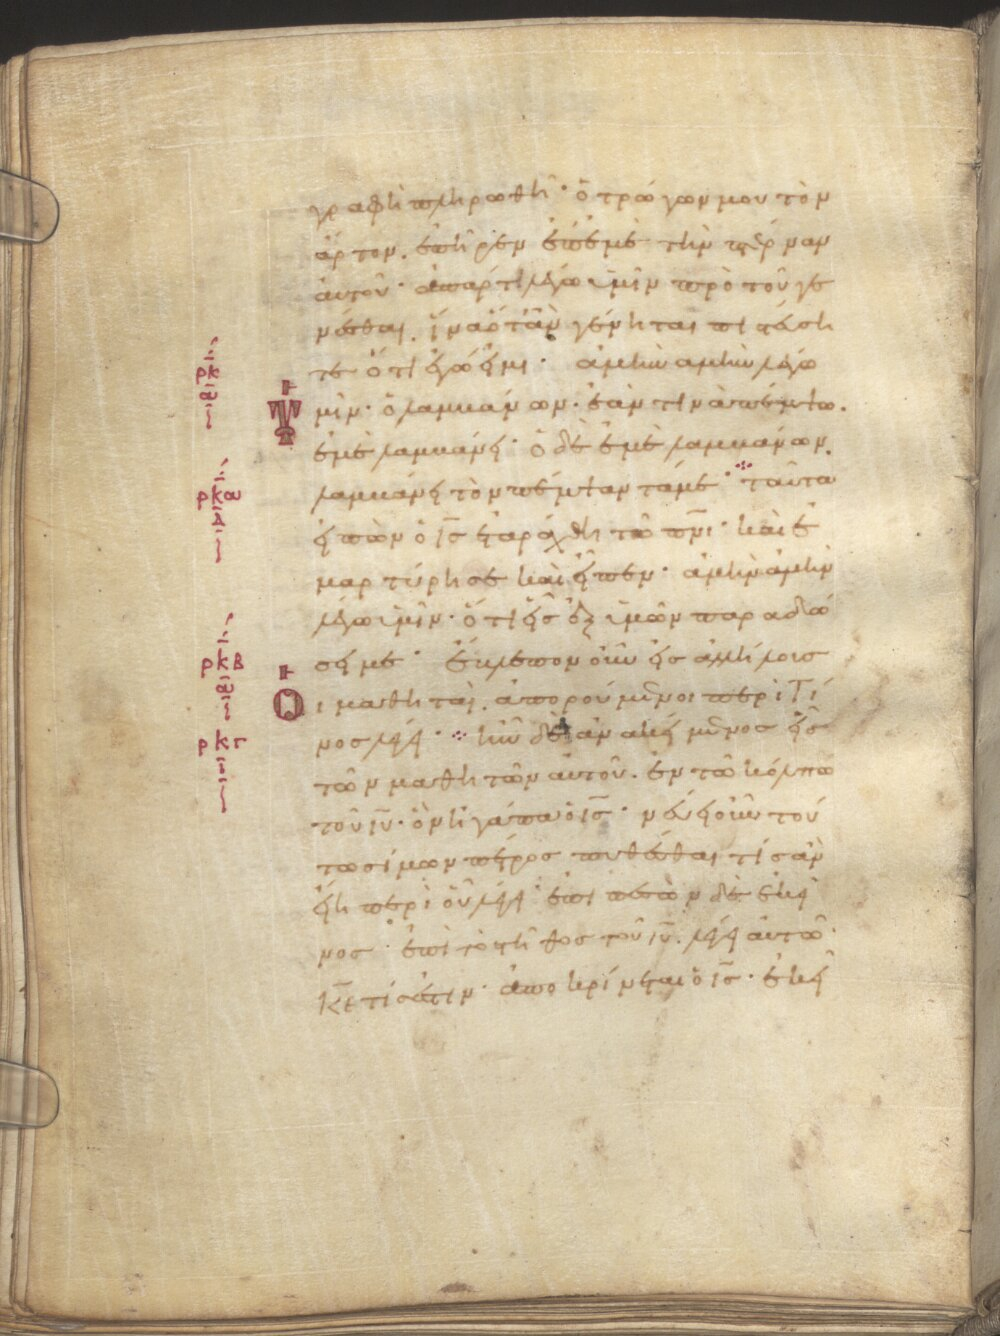 γραφὴ πληρωθῆ· ὁ τρώγων μου τὸν
ἄρτον. ἐπῆρεν ἐπ' ἐμὲ τὴν πτέρναν
ἀυτοῦ· ἀπαρτὶ λέγω ὑμῖν πρὸ τοῦ γε
νέσθαι. ἵνα ὅταν γένηται πιστεύσή
τε ὅτι ἐγώ εἰμι· ἀμὴν ἀμὴν λέγω
ὑμῖν· ὁ λαμβάνων· ἐάν τινα πέμψω.
ἐμὲ λαμβάνει· ὁ δὲ ἐμὲ λαμβάνων.
λαμβάνει τὸν πέμψαντά με· ταῦτα
εἰπὼν ὁ ι̅ς̅ ἐταράχθη τῶ π̅ν̅ι̅· καὶ ἐ
μαρτύρησε καὶ εἶπεν· ἀμὴν ἀμὴν
λέγω ὑμῖν· ὅτι εἷς ἐξ ὑμῶν παραδώ
σει με· ἔβλεπον οὖν εἰς ἀλλήλους
Οἱ μαθηταὶ. ἀπορούμενοι περὶ τί
νος λέγει· ἦν δὲ ἀνακείμενος εἷς
τῶν μαθητῶν ἀυτοῦ. ἐν τῶ κόλπω
τοῦ ι̅υ̅· ὃν ἠγάπα ὁ ι̅ς̅· νεύει οὖν τού
τω σίμων πέτρος πυθέσθαι τίς ἂν
εἴη περὶ οὗ λέγει· ἐπιπεσὼν δὲ ἐκεῖ
νος· ἐπὶ τὸ στῆθος τοῦ ι̅υ̅. λέγει ἀυτῶ·
κ̅ε̅ τίς ἐστιν· ἀποκρίνεται ὁ ι̅ς̅· ἐκεῖ
ρκ
α
ρκα
δ
ρκβ
α
ρκγ
ι